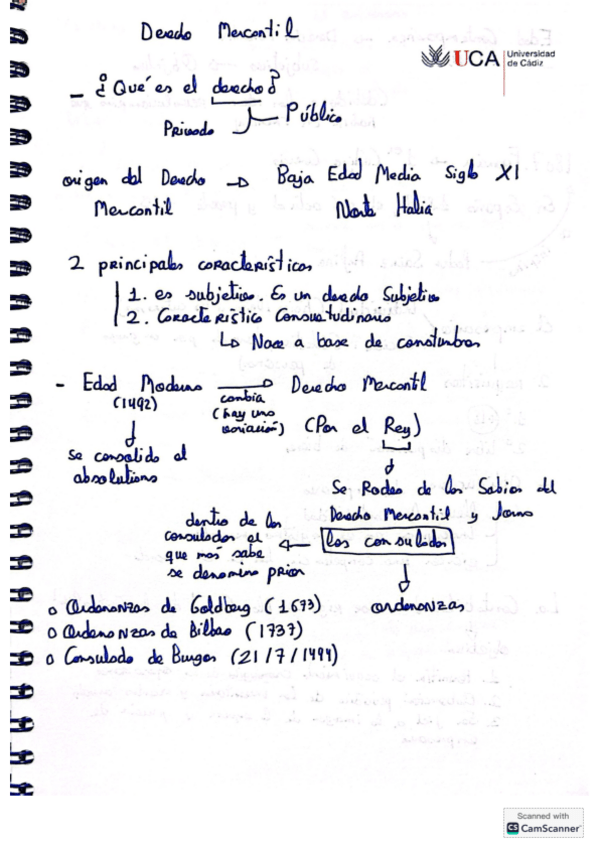 Derecho Mercantil
UCA Universidad de Cádiz
- ¿Qué es el derecho?
Privado Público
origen del Derecho → Baja Edad Media Siglo XI
Mercantil Norte Italia
2 principales características
1. es subjetivo. Es un derecho Subjetivo
2. Característica Consuetudinario
↳ Nace a base de constumbres
- Edad Moderna → Derecho Mercantil
(1492) cambia
(hay una variación) (Por el Rey)
se consolida el absolutismo
Se Rodea de los Sabios del
Derecho Mercantil y forma
los consulados
dentro de los
consulados el
que más sabe
se denomina prior
ordenanzas
o Ordenanzas de Goldberg (1673)
o Ordenanzas de Bilbao (1737)
o Consulado de Burgos (21/7/1494)
Scanned with
CS CamScanner